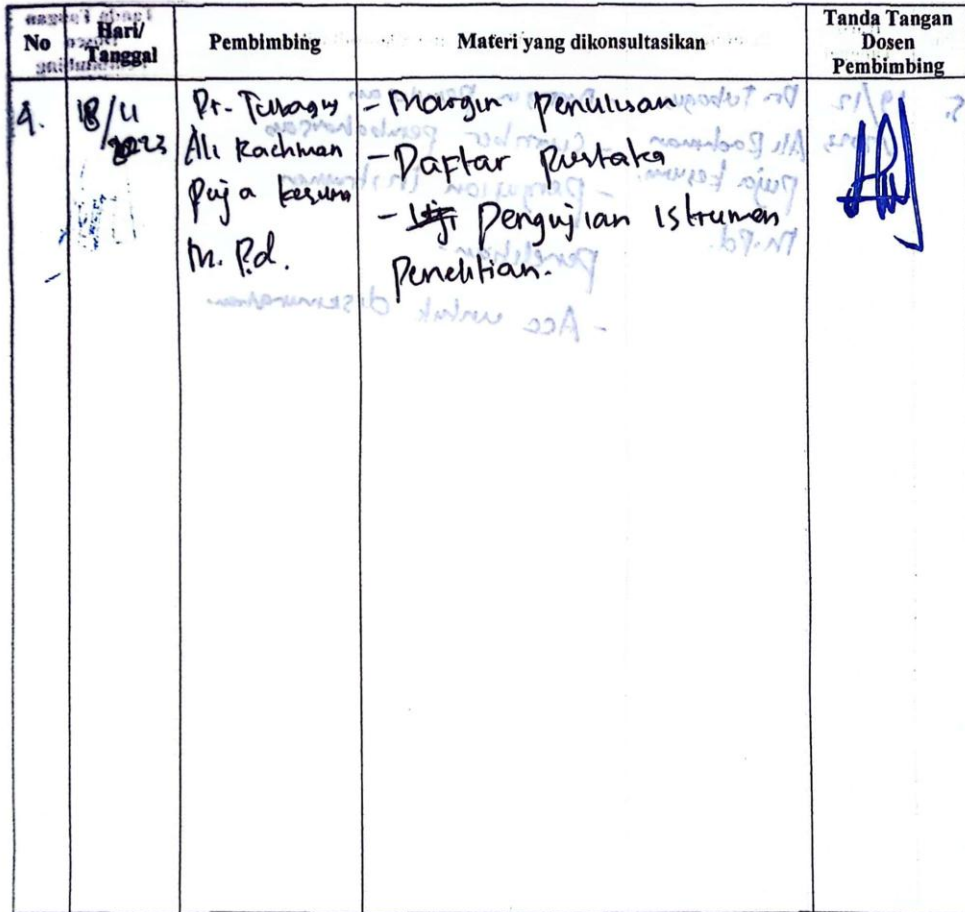 No
Hari/
Tanggal
Pembimbing
Materi yang dikonsultasikan
Tanda Tangan
Dosen
Pembimbing
4.
18/11
2023
Dr. Tubagus
Ali Rachman
Puja kesuma
M. Pd.
- Margin penulisan
- Daftar Pustaka
- Uji Pengujian Istrumen
Penelitian.